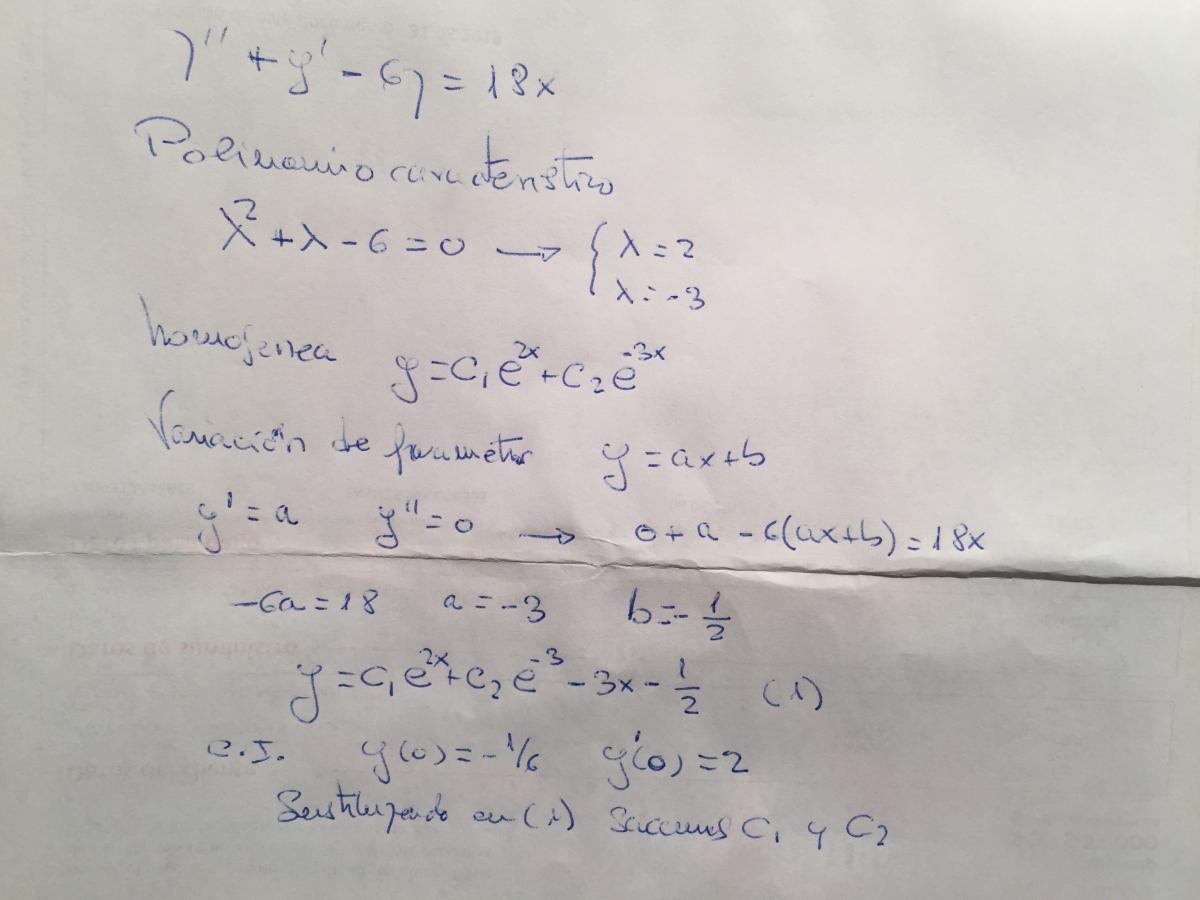 y'' + y' - 6y = 18x
Polinomio caracteristico
λ² + λ - 6 = 0 → { λ = 2
λ = -3
homogenea y = C₁e^2x + C₂e^-3x
Variación de parametros y = ax + b
y' = a y'' = 0 → 0 + a - 6(ax+b) = 18x
-6a = 18 a = -3 b = -1/2
y = C₁e^2x + C₂e^-3 - 3x - 1/2 (1)
C.I. y(0) = -1/6 y'(0) = 2
Sustituyendo en (1) sacamos C₁ y C₂